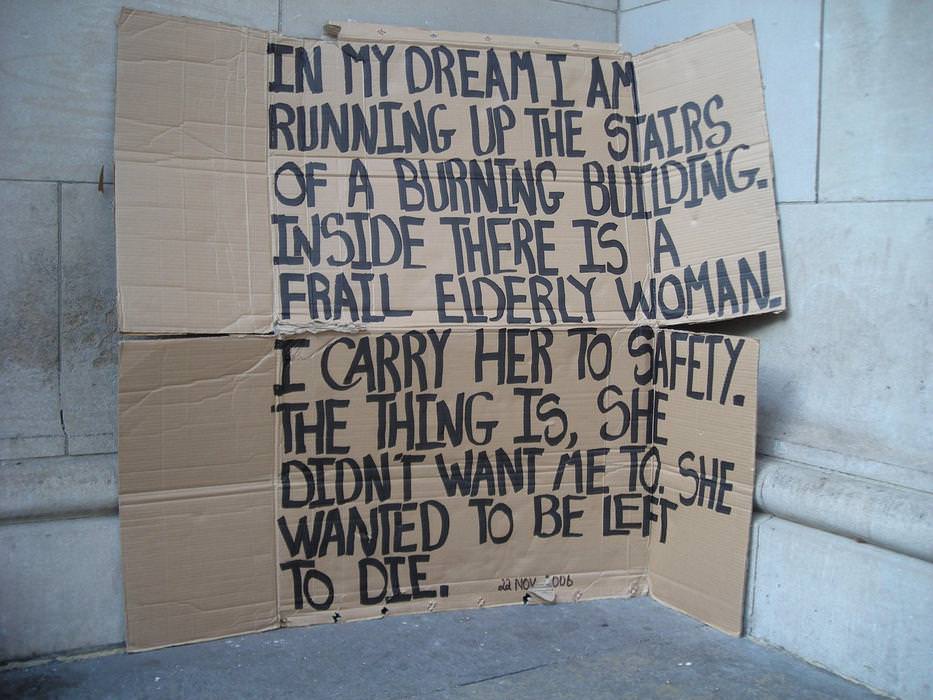 IN MY DREAM I AM
RUNNING UP THE STAIRS
OF A BURNING BUILDING.
INSIDE THERE IS A
FRAIL ELDERLY WOMAN.
I CARRY HER TO SAFETY.
THE THING IS, SHE
DIDN'T WANT ME TO. SHE
WANTED TO BE LEFT
TO DIE.
22 NOV